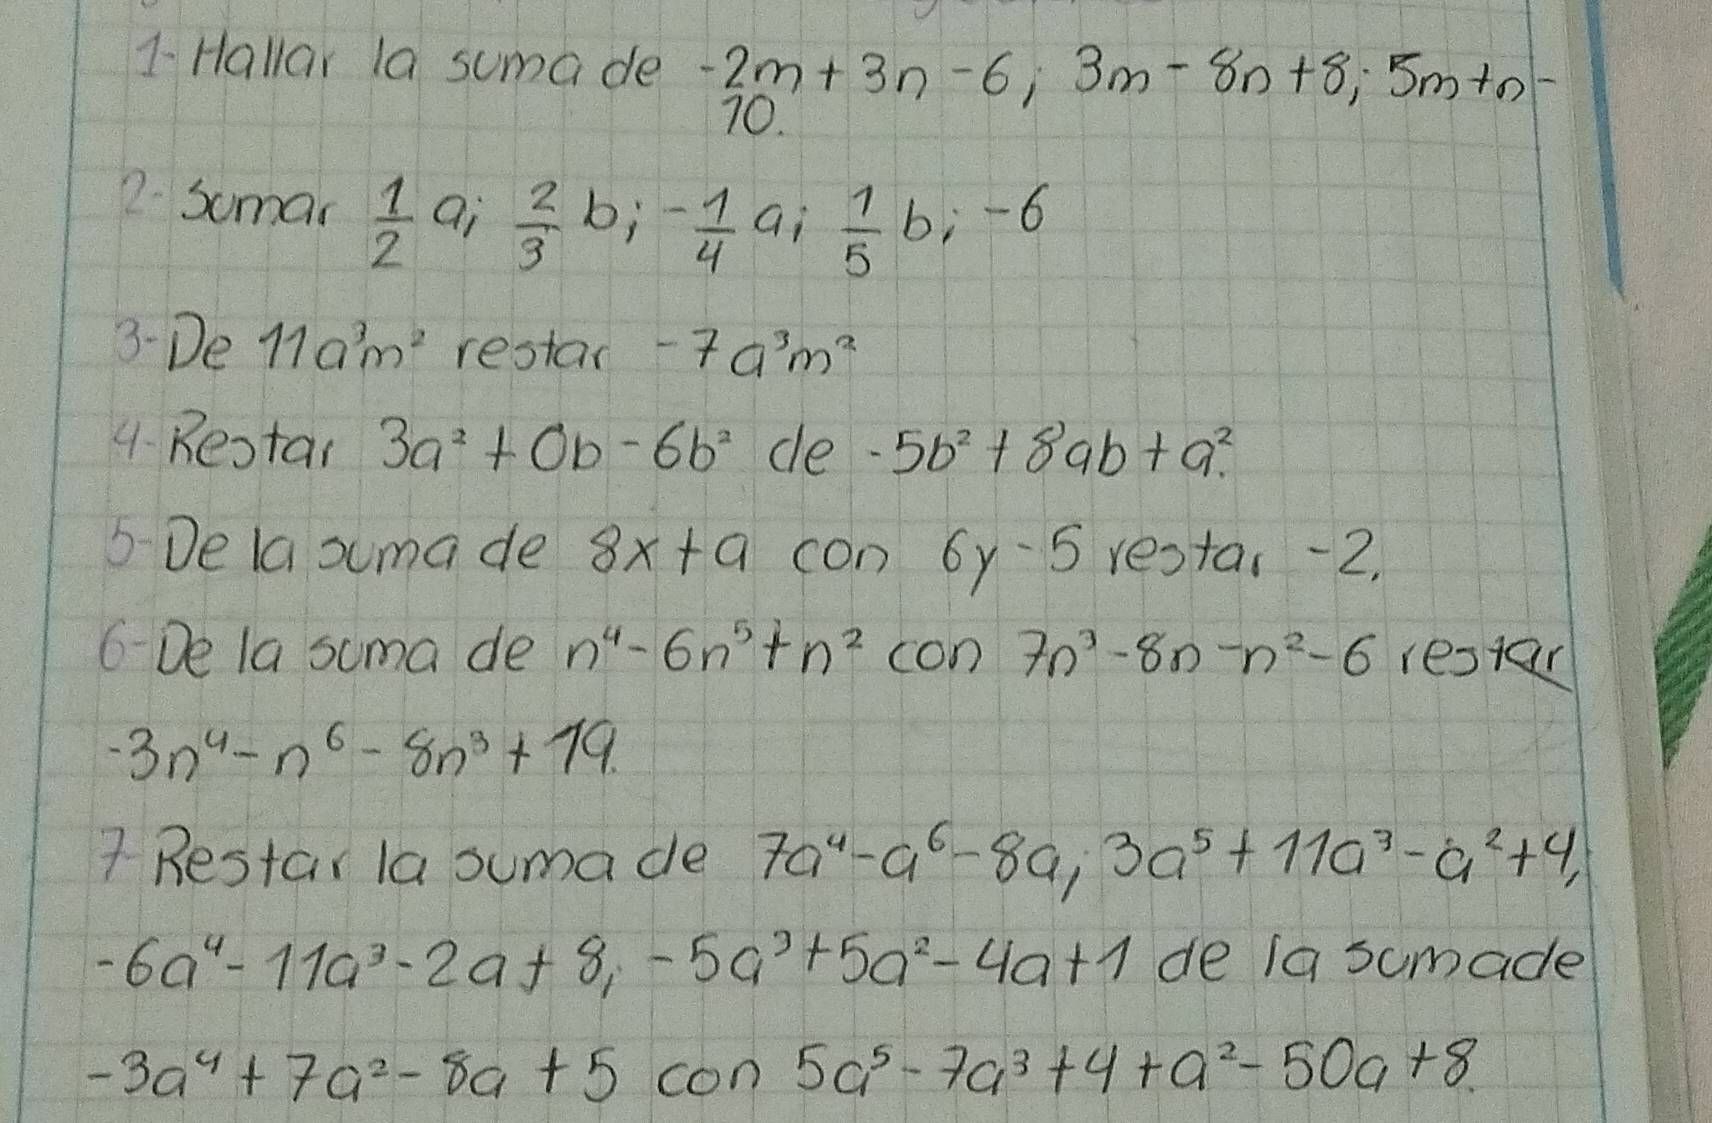 1- Hallar la suma de -2m + 3n - 6; 3m - 8n + 8; 5m + n -
10.
2- Sumar 1/2 a; 2/3 b; -1/4 a; 1/5 b; -6
3- De 11a³m² restar -7a³m²
4- Restar 3a² + 0b - 6b² de -5b² + 8ab + a².
5- De la suma de 8x + a con 6y - 5 restar -2.
6- De la suma de n⁴ - 6n⁵ + n² con 7n³ - 8n - n² - 6 restar
-3n⁴ - n⁶ - 8n³ + 19.
7- Restar la suma de 7a⁴ - a⁶ - 8a; 3a⁵ + 11a³ - a² + 4,
-6a⁴ - 11a³ - 2a + 8, -5a³ + 5a² - 4a + 1 de la suma de
-3a⁴ + 7a² - 8a + 5 con 5a⁵ - 7a³ + 4 + a² - 50a + 8.